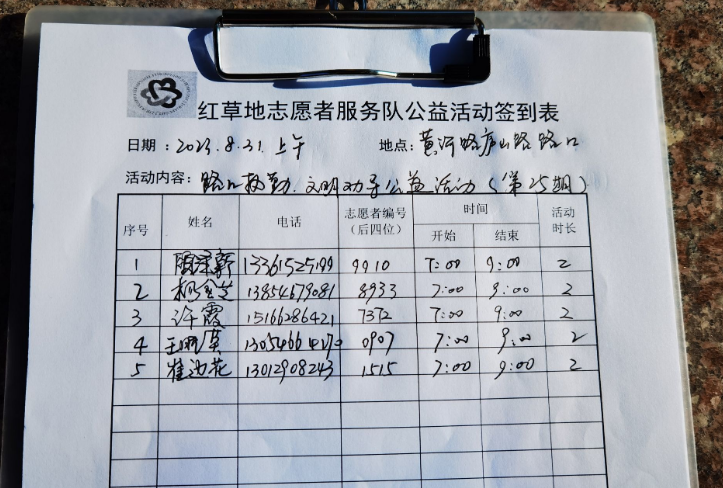 红草地志愿者服务队公益活动签到表
日期:2023.8.31.上午 地点:黄河路庐山路路口
活动内容:路口执勤.文明劝导公益活动(第25期)
序号 姓名 电话 志愿者编号(后四位) 时间 开始 结束 活动时长
1 13361525199 9910 7:00 9:00 2
2 13854679081 8933 7:00 9:00 2
3 许霞 15166286421 7372 7:00 9:00 2
4 0907 7:00 9:00 2
5 13012908243 1515 7:00 9:00 2